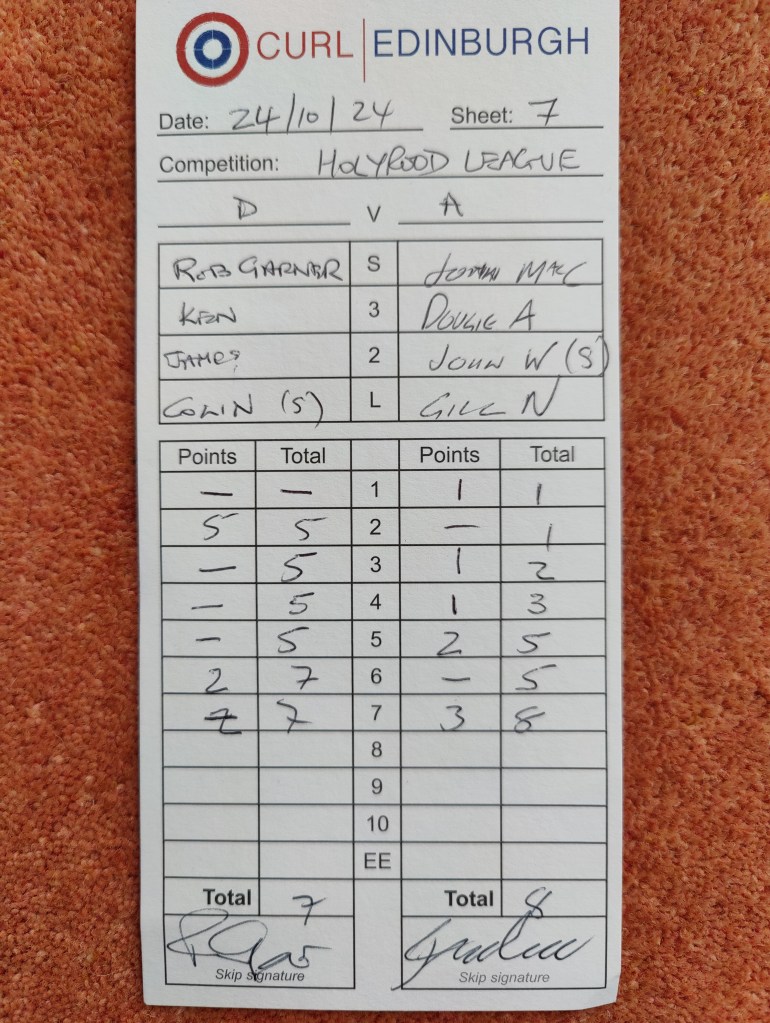 CURL EDINBURGH
Date: 24/10/24 Sheet: 7
Competition: HOLYROOD LEAGUE
D V A
ROB GARNER S MAC
KEN 3 DOUGIE A
JAMES 2 JOHN W (S)
COLIN (S) L GILL N
Points Total Points Total
— — 1 1 1
5 5 2 — 1
— 5 3 1 2
— 5 4 1 3
— 5 5 2 5
2 7 6 — 5
7 7 3 8
8
9
10
EE
Total 7 Total 8
Skip signature Skip signature